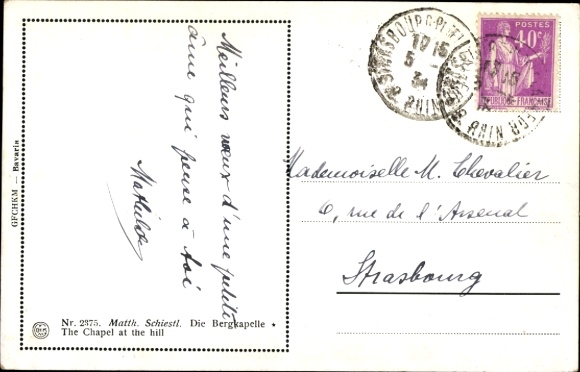 Meilleurs vœux d'une petite
âme qui pense à toi
Mathilde
GPCHKM — Bavaria
Nr. 2375. Matth. Schiestl. Die Bergkapelle ★
The Chapel at the hill
STRASBOURG
1915
5 -
34
BAS RHIN
POSTES
40c
REPUBLIQUE FRANÇAISE
Mademoiselle M. Chevalier
6, rue de l'Arsenal
Strasbourg